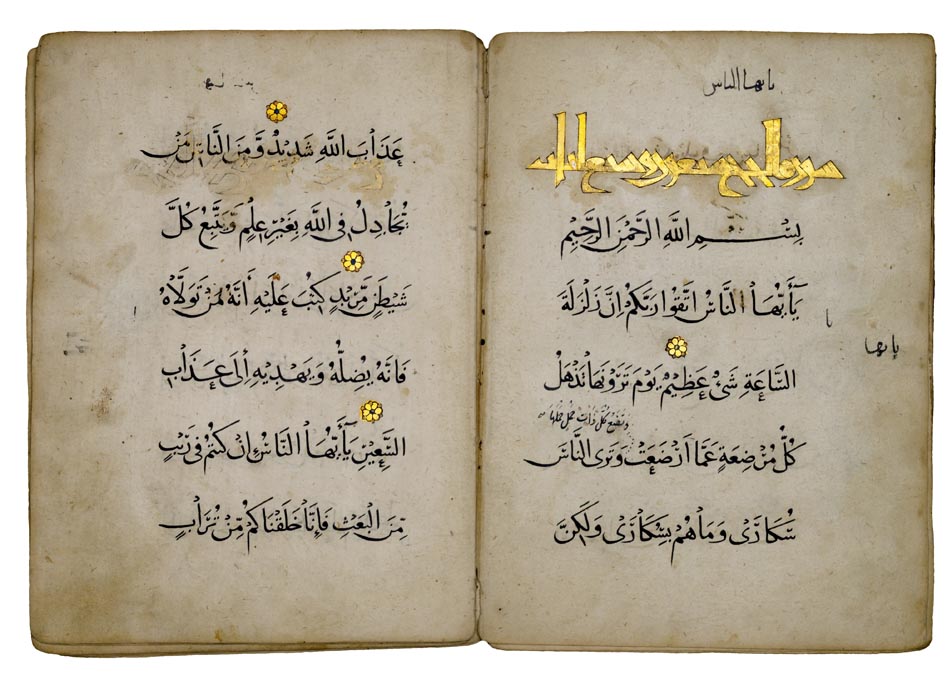 يا يها الناس
سورة الحج سبعون وسبع ايات
بِسْمِ اللَّهِ الرَّحْمَنِ الرَّحِيمِ
يَأَيُّهَا النَّاسُ اتَّقُوا رَبَّكُمْ إِنَّ زَلْزَلَةَ
يا
يا يها
السَّاعَةِ شَيْءٌ عَظِيمٌ يَوْمَ تَرَوْنَهَا تَذْهَلُ
وتضع كل ذات حمل حملها
كُلُّ مُرْضِعَةٍ عَمَّا أَرْضَعَتْ وَتَرَى النَّاسَ
سُكَارَى وَمَا هُمْ بِسُكَارَى وَلَكِنَّ
عَذَابَ اللَّهِ شَدِيدٌ وَمِنَ النَّاسِ مَنْ
يُجَادِلُ فِي اللَّهِ بِغَيْرِ عِلْمٍ وَيَتَّبِعُ كُلَّ
شَيْطَنٍ مَرِيدٍ كُتِبَ عَلَيْهِ أَنَّهُ مَنْ تَوَلَّاهُ
فَانَّهُ يُضِلُّهُ وَيَهْدِيهِ إِلَى عَذَابِ
السَّعِيرِ يَأَيُّهَا النَّاسُ إِنْ كُنْتُمْ فِي رَيْبٍ
مِنَ الْبَعْثِ فَإِنَّا خَلَقْنَاكُمْ مِنْ تُرَابٍ